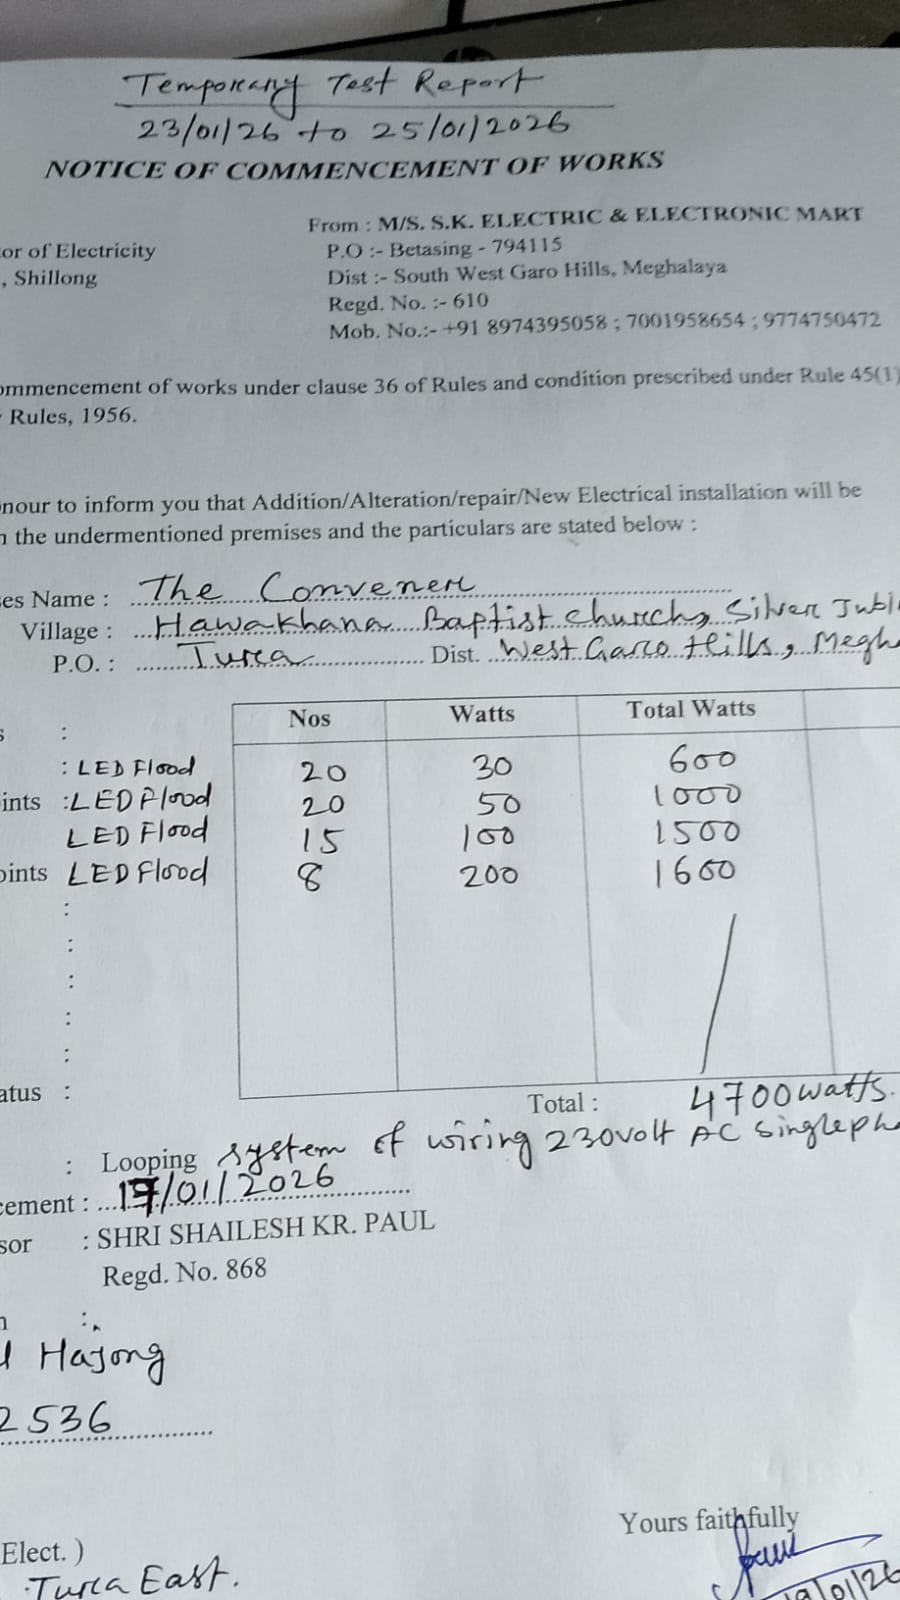 Temporary Test Report
23/01/26 to 25/01/2026
NOTICE OF COMMENCEMENT OF WORKS
From : M/S. S.K. ELECTRIC & ELECTRONIC MART
or of Electricity
P.O :- Betasing - 794115
, Shillong
Dist :- South West Garo Hills, Meghalaya
Regd. No. :- 610
Mob. No.:- +91 8974395058 ; 7001958654 ; 9774750472
ommencement of works under clause 36 of Rules and condition prescribed under Rule 45(1)
Rules, 1956.
nour to inform you that Addition/Alteration/repair/New Electrical installation will be
n the undermentioned premises and the particulars are stated below :
es Name : The Convener
Village : Hawakhana Baptist church, Silver Jubl
P.O. : Tura Dist. West Garo Hills, Megh
Nos Watts Total Watts
s :
: LED Flood 20 30 600
ints : LED Flood 20 50 1000
LED Flood 15 100 1500
oints LED Flood 8 200 1600
:
:
:
:
:
atus :
Total : 4700watts.
: Looping system of wiring 230volt AC singleph
cement : 17/01/2026
sor : SHRI SHAILESH KR. PAUL
Regd. No. 868
n :
l Hajong
2536
Yours faithfully
Elect. )
Tura East.
19/01/26